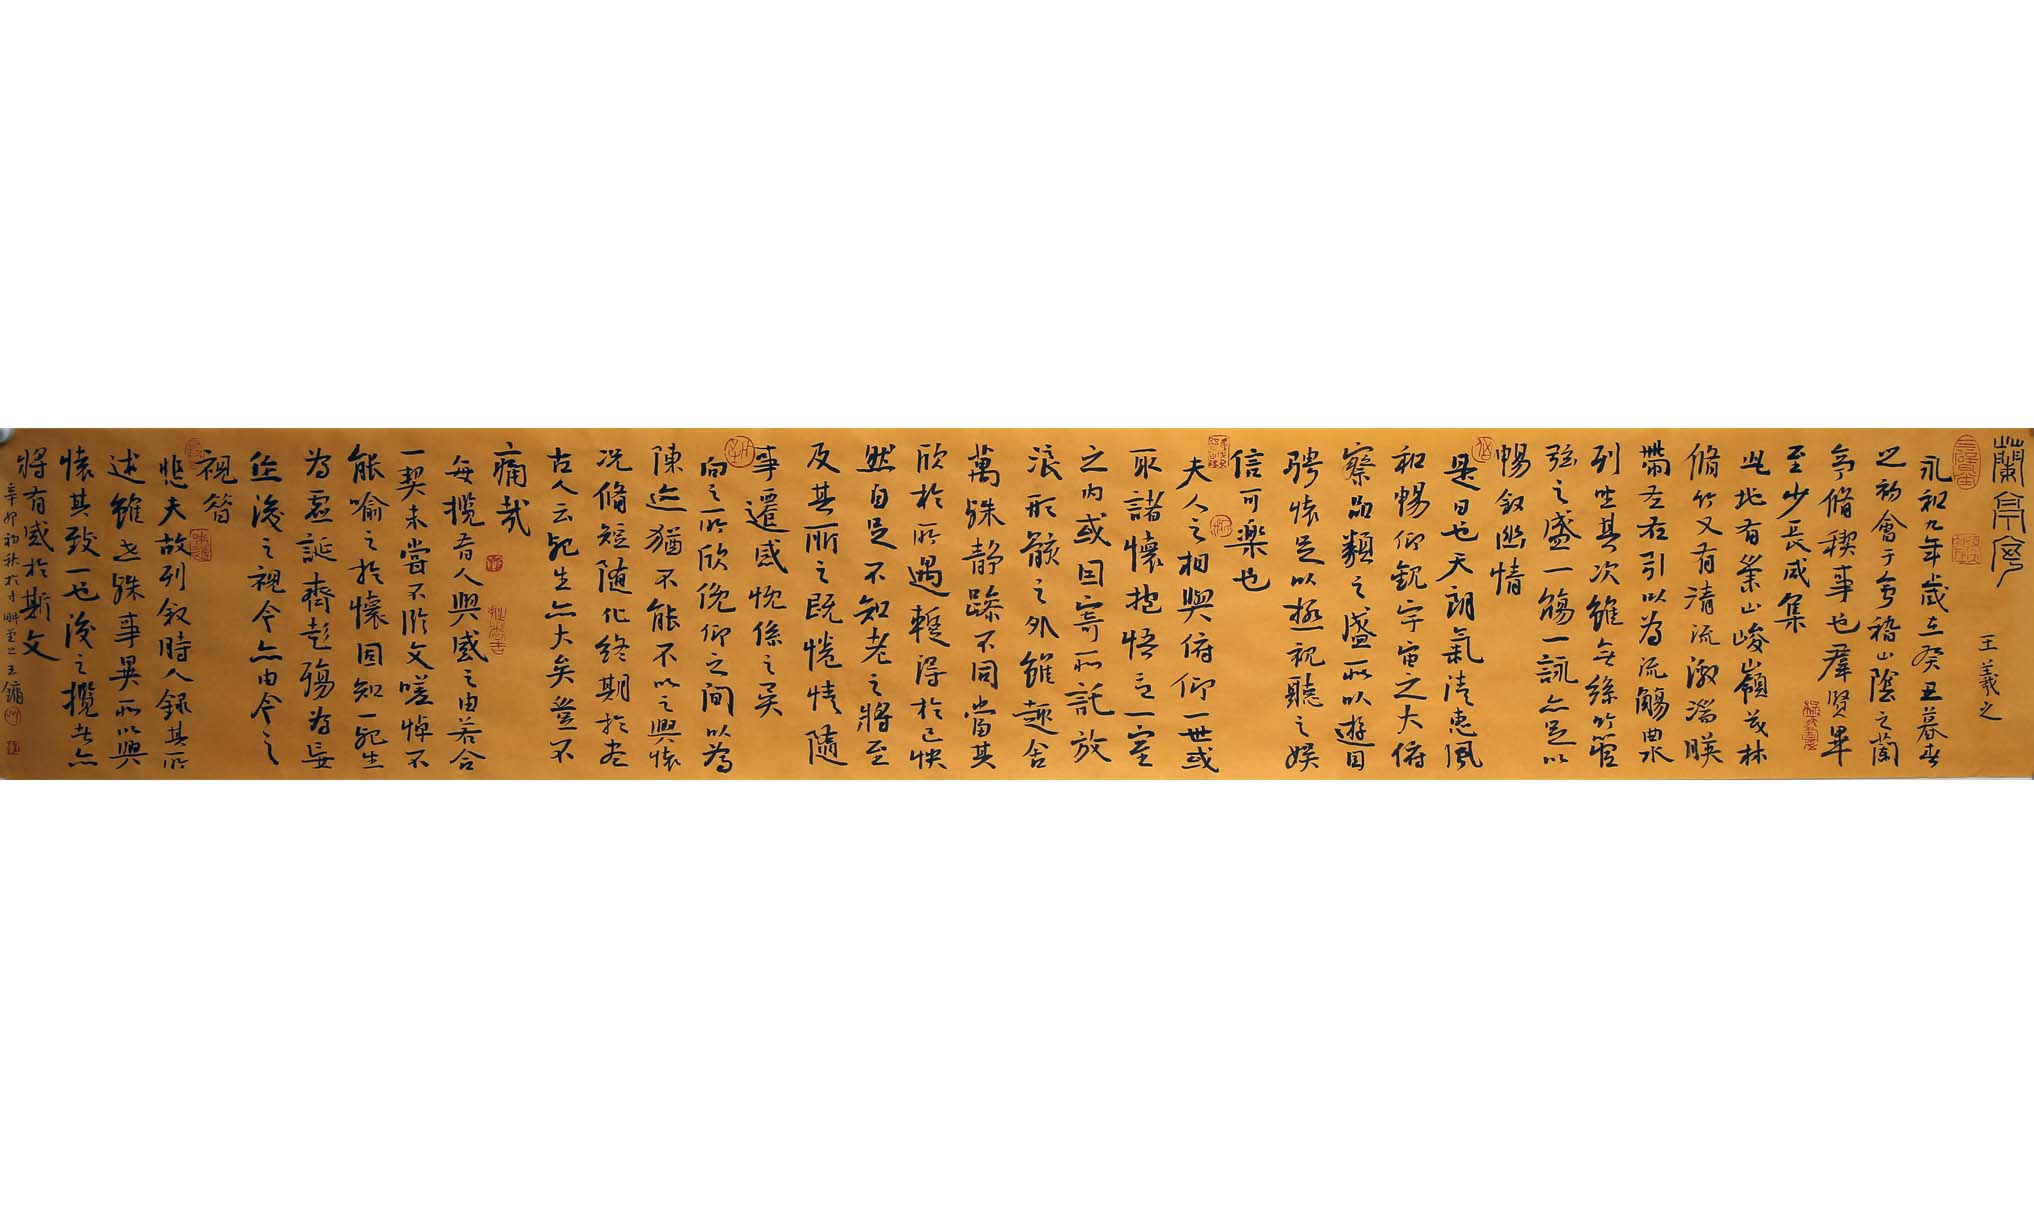 蘭亭序
王羲之
永和九年歲在癸丑暮春
之初會于會稽山陰之蘭
亭脩稧事也羣賢畢
至少長咸集
此地有崇山峻嶺茂林
脩竹又有清流激湍暎
帶左右引以為流觴曲水
列坐其次雖無絲竹管
弦之盛一觴一詠亦足以
暢敘幽情
是日也天朗氣清惠風
和暢仰觀宇宙之大俯
察品類之盛所以遊目
騁懷足以極視聽之娛
信可樂也
夫人之相與俯仰一世或
取諸懷抱悟言一室
之內或因寄所託放
浪形骸之外雖趣舍
萬殊静躁不同當其
欣於所遇暫得於己快
然自足不知老之將至
及其所之既惓情隨
事遷感慨係之矣
向之所欣俛仰之間以為
陳迹猶不能不以之興懷
况脩短隨化終期於盡
古人云死生亦大矣豈不
痛哉
每攬昔人興感之由若合
一契未嘗不臨文嗟悼不
能喻之於懷固知一死生
為虛誕齊彭殤為妄
作後之視今亦由今之
視昔
悲夫故列敘時人錄其所
述雖世殊事異所以興
懷其致一也後之攬者亦
將有感於斯文
辛卯初秋於
王鏞